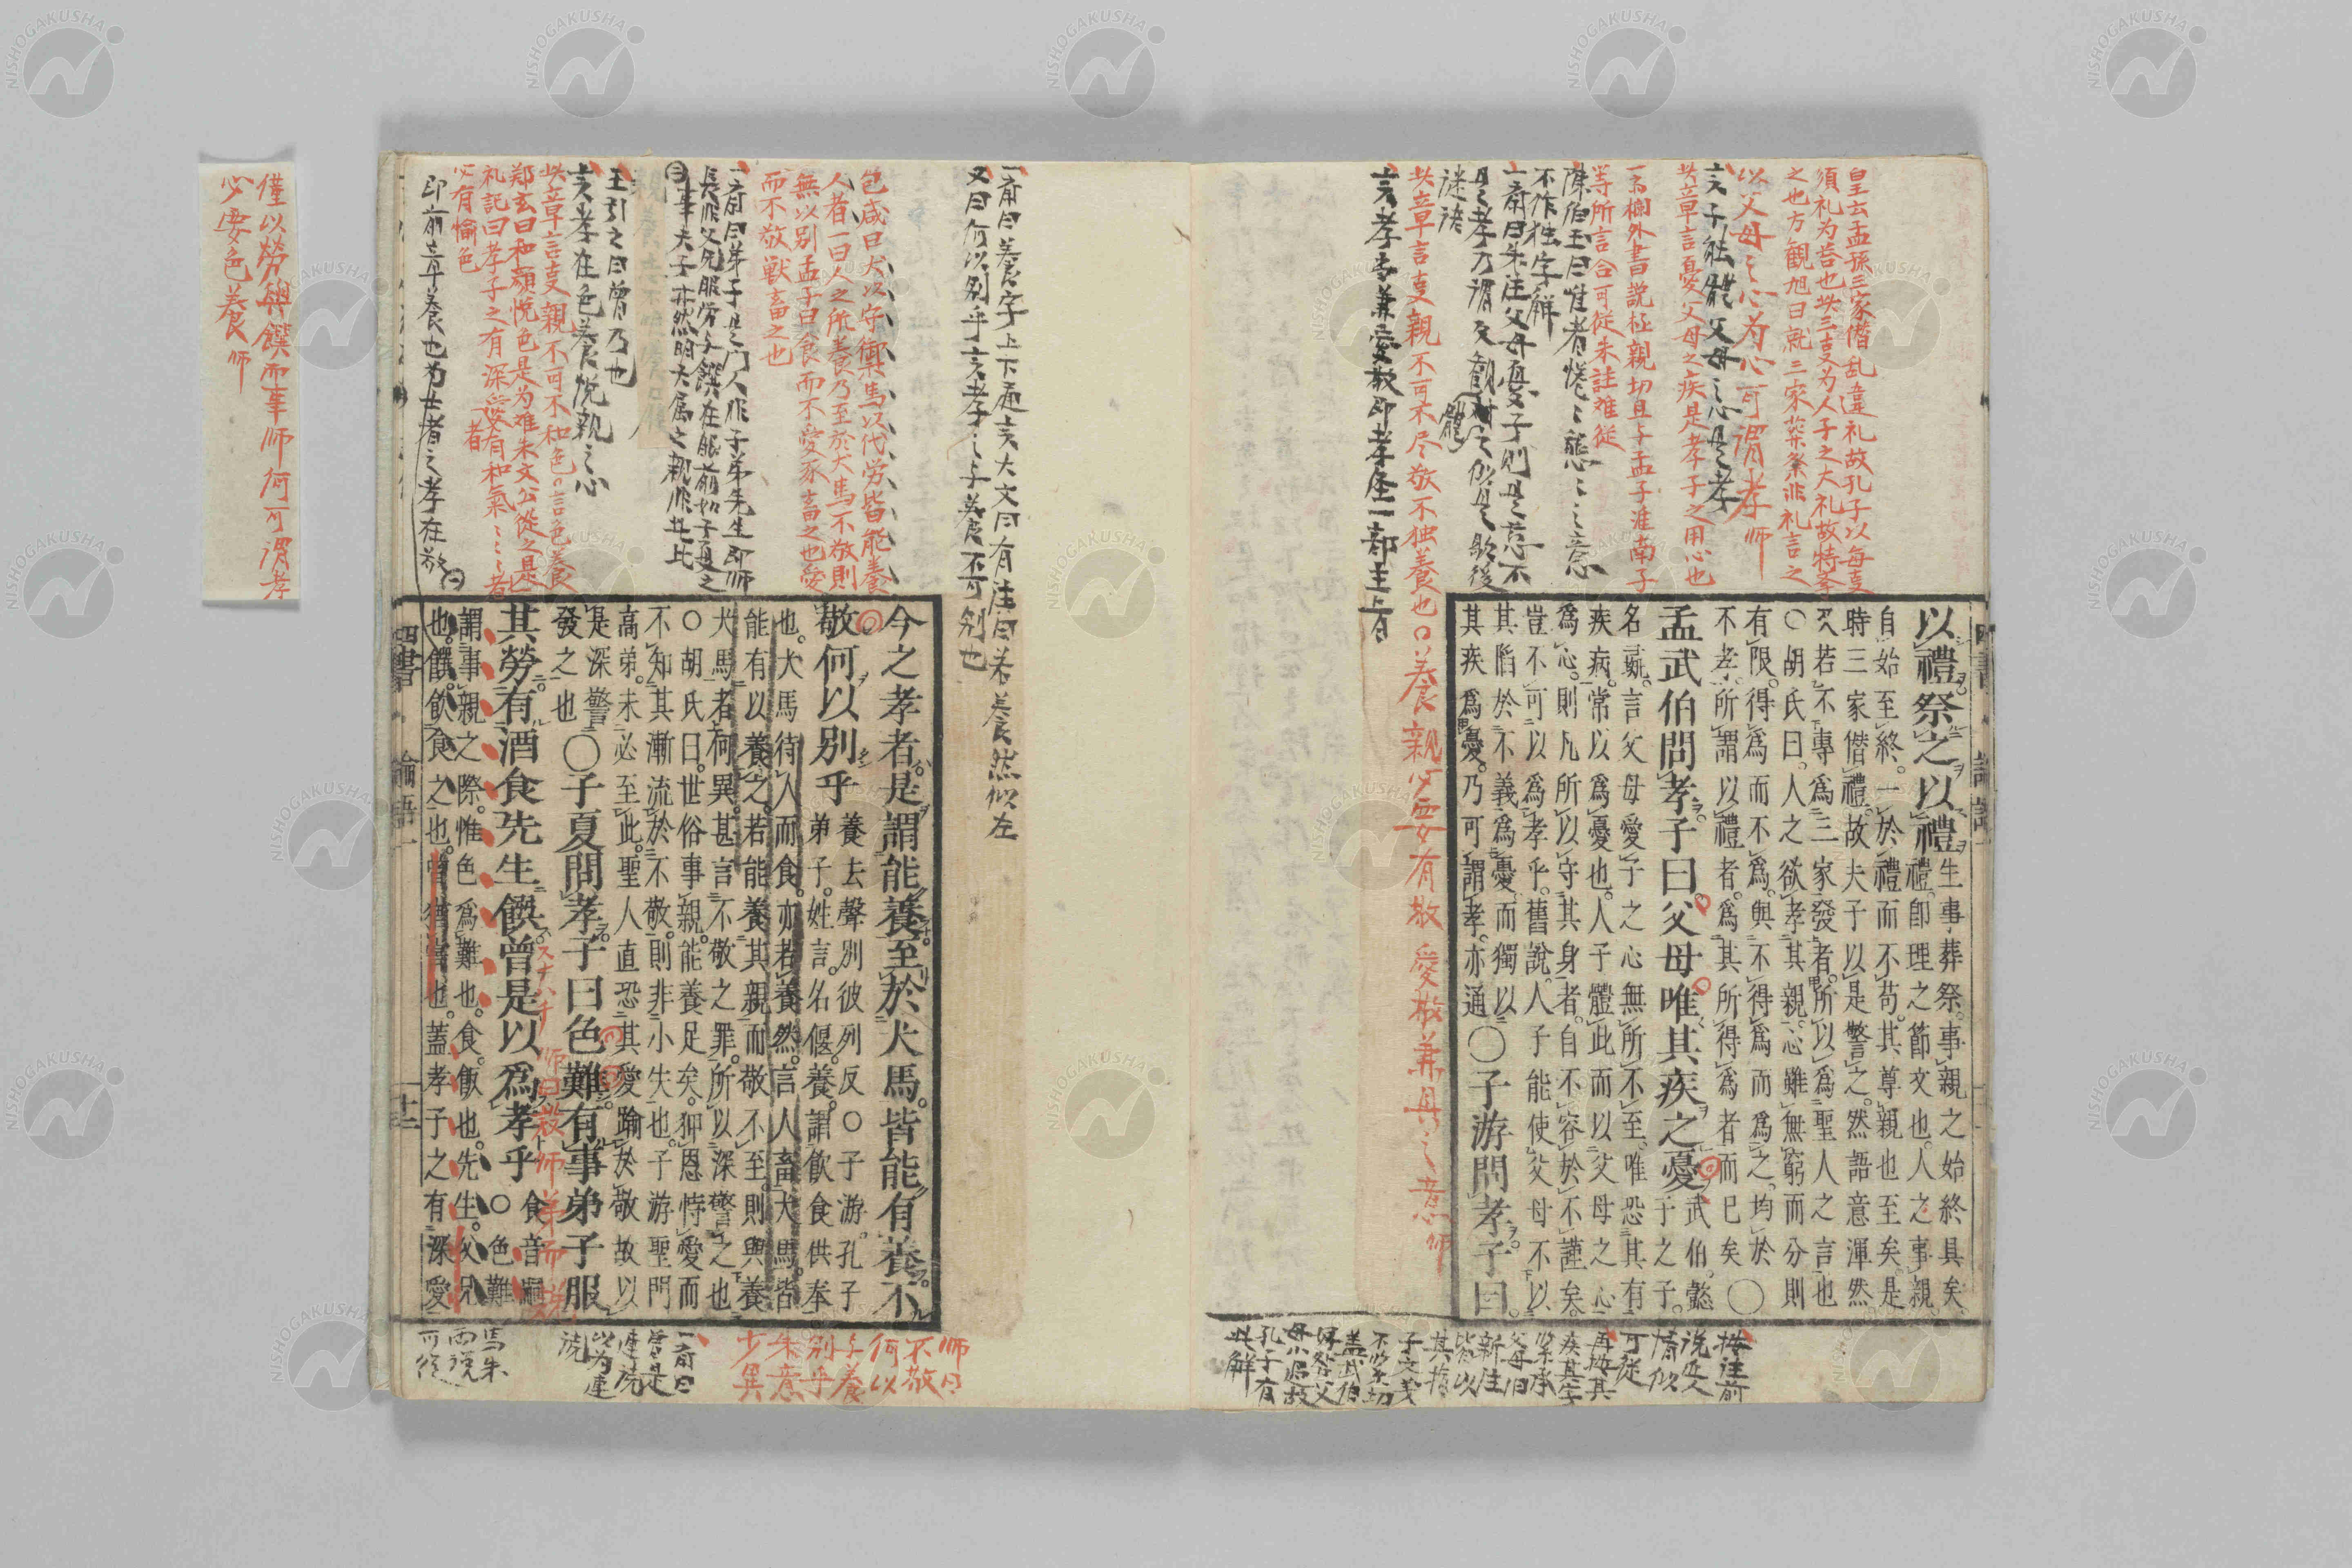 皇云孟孫三家僭乱違礼故孔子以每事
須礼为荅也此三事又为人子之大礼故特挙
之也方観旭曰就三家葬祭非礼言之
以父母之心为心可謂孝師
亥子能體父母之心是孝
此章言憂父母之疾是孝子之用心也
一斎欄外書説極親切且与孟子淮南子
等所言合可従朱註难従
陳伯玉曰唯者惓〻態〻之意
不作独字解
一斎曰朱注父母憂子則是意不
此章言事親不可不尽敬不独養也〇養親必要有敬愛敬兼具之意師
亥孝子兼愛敬即孝径一部主上有
以禮祭之以禮
生事葬祭。事親之始終具矣
禮卽理之節文也。人之事親
自始至終。一於禮而不苟。其尊親也至矣是
時三家僭禮。故夫子以是警之。然語意渾然
又若不專爲三家發者。所以爲聖人之言也
〇胡氏曰。人之欲孝其親。心雖無窮而分則
有限。得爲而不爲。與不得爲而爲之。均於
不孝。所謂以禮者。爲其所得爲者而已矣〇
孟武伯問孝子曰。父母唯其疾之憂
武伯。懿
子之子。
名彘。言父母愛子之心無所不至。唯恐其有
疾病。常以爲憂也。人子體此而以父母之心
爲心。則凡所以守其身者。自不容於不謹矣。
豈不可以爲孝乎。舊說。人子能使父母不以
其陷於不義爲憂。而獨以
其疾爲憂。乃可謂孝。亦通
〇子游問孝子曰。
按注前
説父
情似
可従
再按其
疾其字
父母旧
新注
其指
子之義
不必切
盖武伯
孔子有
此解
一斎曰養字上下通亥大文曰有注曰若養然似左
又曰何以別乎亥孝之与養不可別也
包咸曰犬以守禦馬以代労皆能養
人者一曰人之所養乃至於犬馬不敬則
無以別孟子曰食而不愛豕畜之也愛
而不敬獣畜之也
一斎曰弟子是門人非子弟先生即師
長非父兄服労与饌在服前如子夏之
事夫子亦然明矣属之親非此比
王引之曰曽乃也
亥孝在色養悦親之心
此章言事親不可不和色〇言色養
鄭玄曰和顔悦色是为难朱文公従之是也
礼記曰孝子之有深愛者有和氣〻〻者
必有愉色
即前章養也为世者之孝在敬
今之孝者。是謂能養。至於犬馬。皆能有養。不
敬何以別乎
養去聲別彼列反〇子游。孔子
弟子。姓言。名偃。養。謂飮食供奉
也。犬馬待人而食。亦若養然。言人畜犬馬。皆
能有以養之。若能養其親而敬不至。則與養
犬馬者何異。甚言不敬之罪。所以深警之也
〇胡氏曰。世俗事親。能養足矣。狎恩恃愛而
不知其漸流於不敬。則非小失也。子游聖門
高弟。未必至此。聖人直恐其愛踰於敬故以
是深警
發之也
〇子夏問孝。子曰色難。有事弟子服
其勞。有酒食先生饌曾是以爲孝乎
食音嗣
〇色難
謂事親之際。惟色爲難也。食。飯也。先生。父兄
也。饌。飮食之也。曾。猶嘗也。蓋孝子之有深愛
四書
論語一
十二
師曰
不敬
何以
与養
別乎
朱意
少異
一斎曰
曽是
連読
以为連
読
馬朱
両説
可従
僅以勞與饌而事師何可謂孝
必要色養師